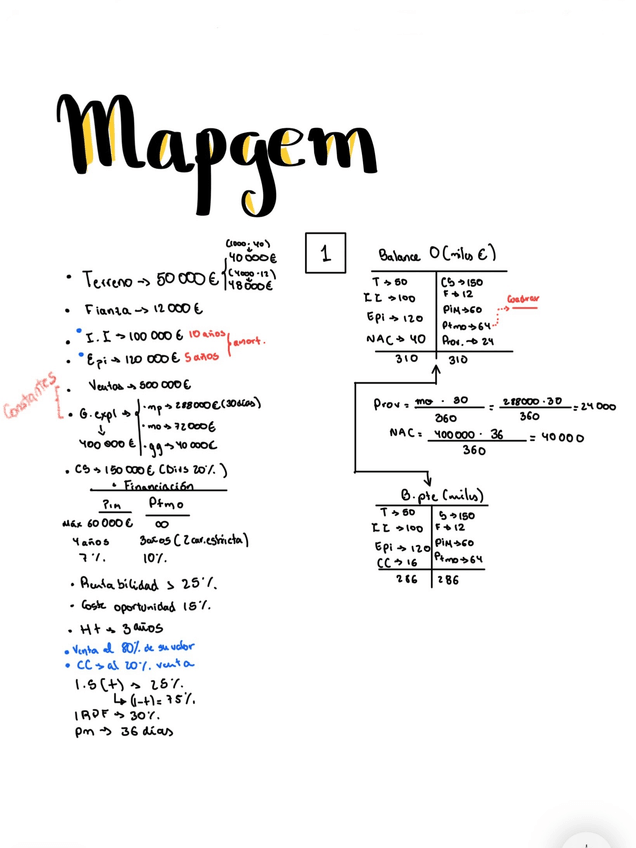 Mapgem
• Terreno → 50 000 € { (1000·40)
40 000 €
(4000·12)
48 000 €
• Fianza → 12 000 €
• I.I → 100 000 € 10 años
• Epi → 120 000 € 5 años } amort.
Constantes
• Ventas → 500 000 €
• G. expl → · mp → 288 000 € (30 días)
· mo → 72 000 €
400 000 € · gg → 40 000 €
• CS → 150 000 € (Divs 20%)
• Financiación
Pim Ptmo
Máx 60 000 € ∞
4 años 3 años (2 car. estricta)
7 % 10%
• Rentabilidad → 25%.
• Coste oportunidad 15%.
• Ht → 3 años
• Venta el 80% de su valor
• CC → al 20% venta
I.S (t) → 25%.
↳ (1-t) = 75%.
IRPF → 30%.
pm → 36 días
1
Balance 0 (miles €)
T → 50 CS → 150
I I → 100 F → 12
Epi → 120 PiM → 60
NAC → 40 Ptmo → 64
Prov. → 24
310 310
Prov = mo · 30 / 360 = 288000 · 30 / 360 = 24 000
NAC = 400 000 · 36 / 360 = 40 000
B. pte (miles)
T → 50 S → 150
I I → 100 F → 12
Epi → 120 PiM → 60
CC → 16 Ptmo → 64
286 286